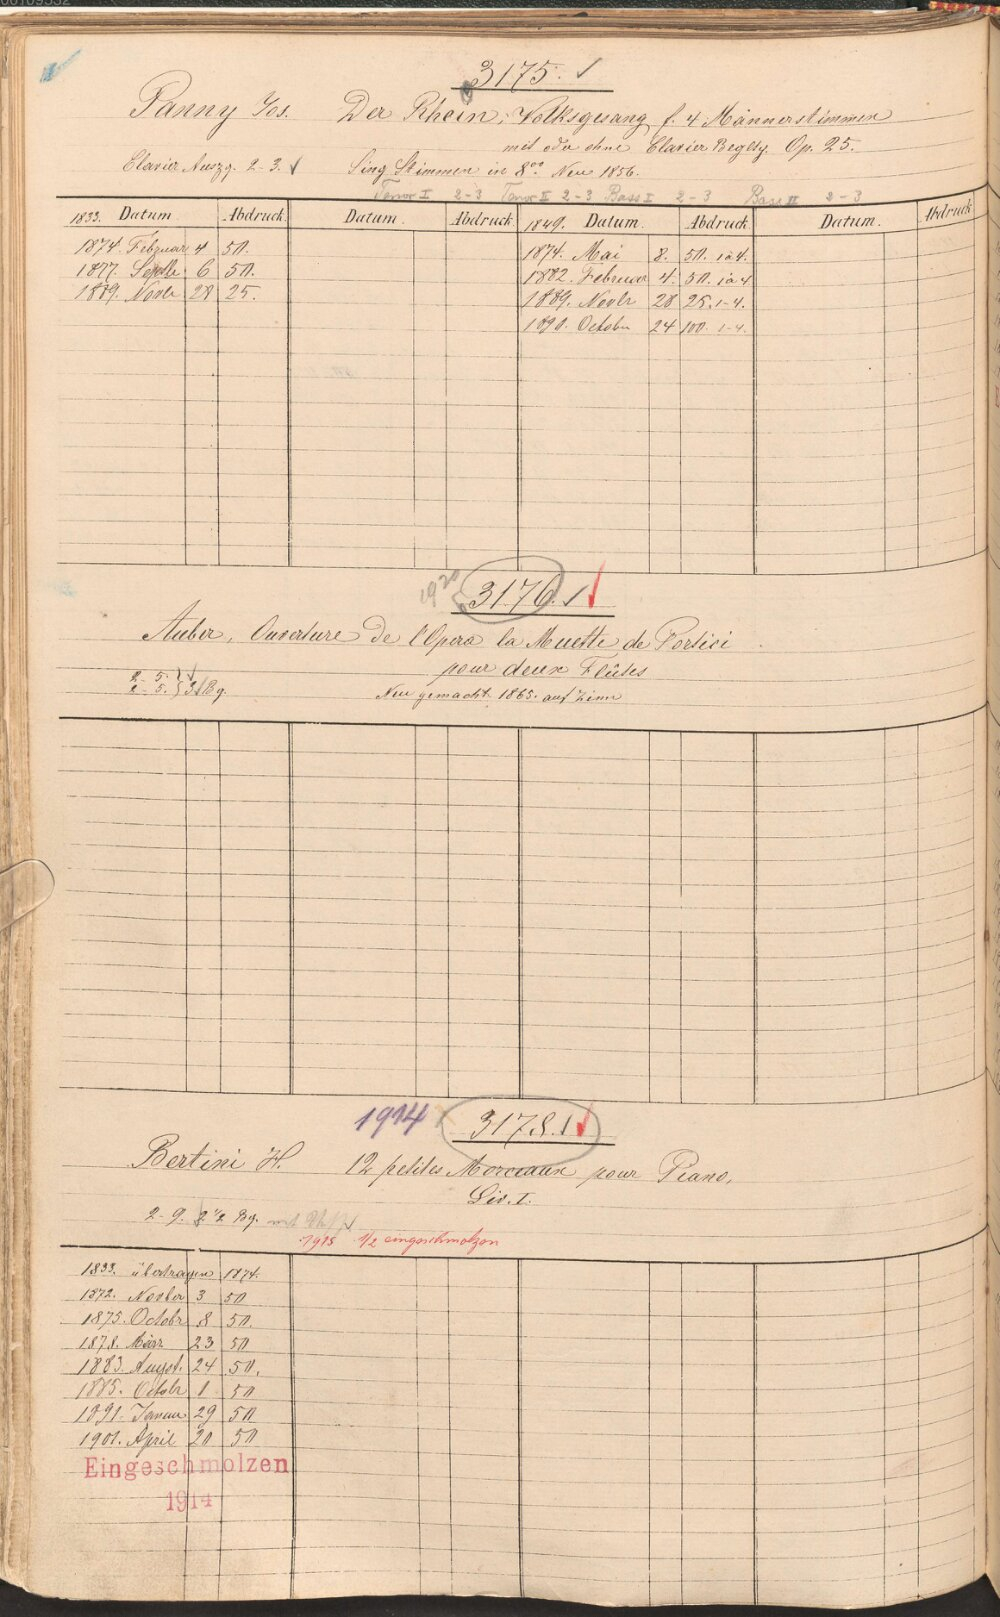 3175.
Panny Jos. Der Rhein, Volksgesang f. 4 Männerstimmen
mit oder ohne Clavier Begltg. Op. 25.
Clavier Auszg. 2-3. Sing Stimmen in 8vo. Neu 1856.
Tenor I 2-3 Tenor II 2-3 Bass I 2-3 Bass II 2-3
1833. Datum Abdruck. Datum. Abdruck 1849. Datum. Abdruck Datum. Abdruck
1874. Februar 4 50. 1874. Mai 8. 50. 1 a 4.
1877. Septbr 6 50. 1882. Februar 4. 50. 1 a 4
1889. Novbr 28 25. 1889. Novbr 28 25. 1-4.
1890. October 24 100. 1-4.
1920 3176.
Auber, Ouverture de l'Opera la Muette de Portici
pour deux Flûtes
2-5.
2-5. 3 Bg. Neu gemacht 1865. auf Zinn
1914 3178.
Bertini H. 12 petites Morceaux pour Piano,
Liv. I.
2-9. 2 1/2 Bg. mit
1915 1/2 eingeschmolzen
1833. übertragen 1874.
1872. Novber 3 50
1875. Octobr 8 50.
1878. März 23 50
1883. August. 24 50.
1885. Octobr 1 50
1891. Januar 29 50
1901. April 20 50
Eingeschmolzen
1914